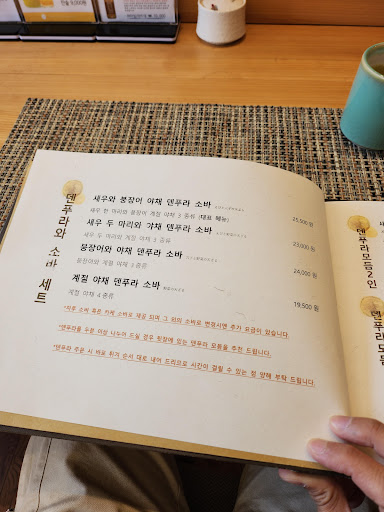 덴푸라와 소바 세트
새우와 붕장어 야채 덴푸라 소바
새우 한 마리와 붕장어 계절 야채 3 종류 (대표 메뉴)
25,500 원
새우 두 마리와 야채 덴푸라 소바
새우 두 마리와 계절 야채 3 종류
23,000 원
붕장어와 야채 덴푸라 소바
붕장어와 계절 야채 3 종류
24,000 원
계절 야채 덴푸라 소바
계절 야채 4 종류
19,500 원
*덴푸라를 두분 이상 나누어 드실 경우 뒷장에 있는 덴푸라 모듬을 추천 드립니다.
*덴푸라 주문 시 바로 튀기 순서 대로 내어 드리므로 시간이 걸릴 수 있는 점 양해 부탁 드립니다.
덴푸라모듬 2인
덴푸라모듬